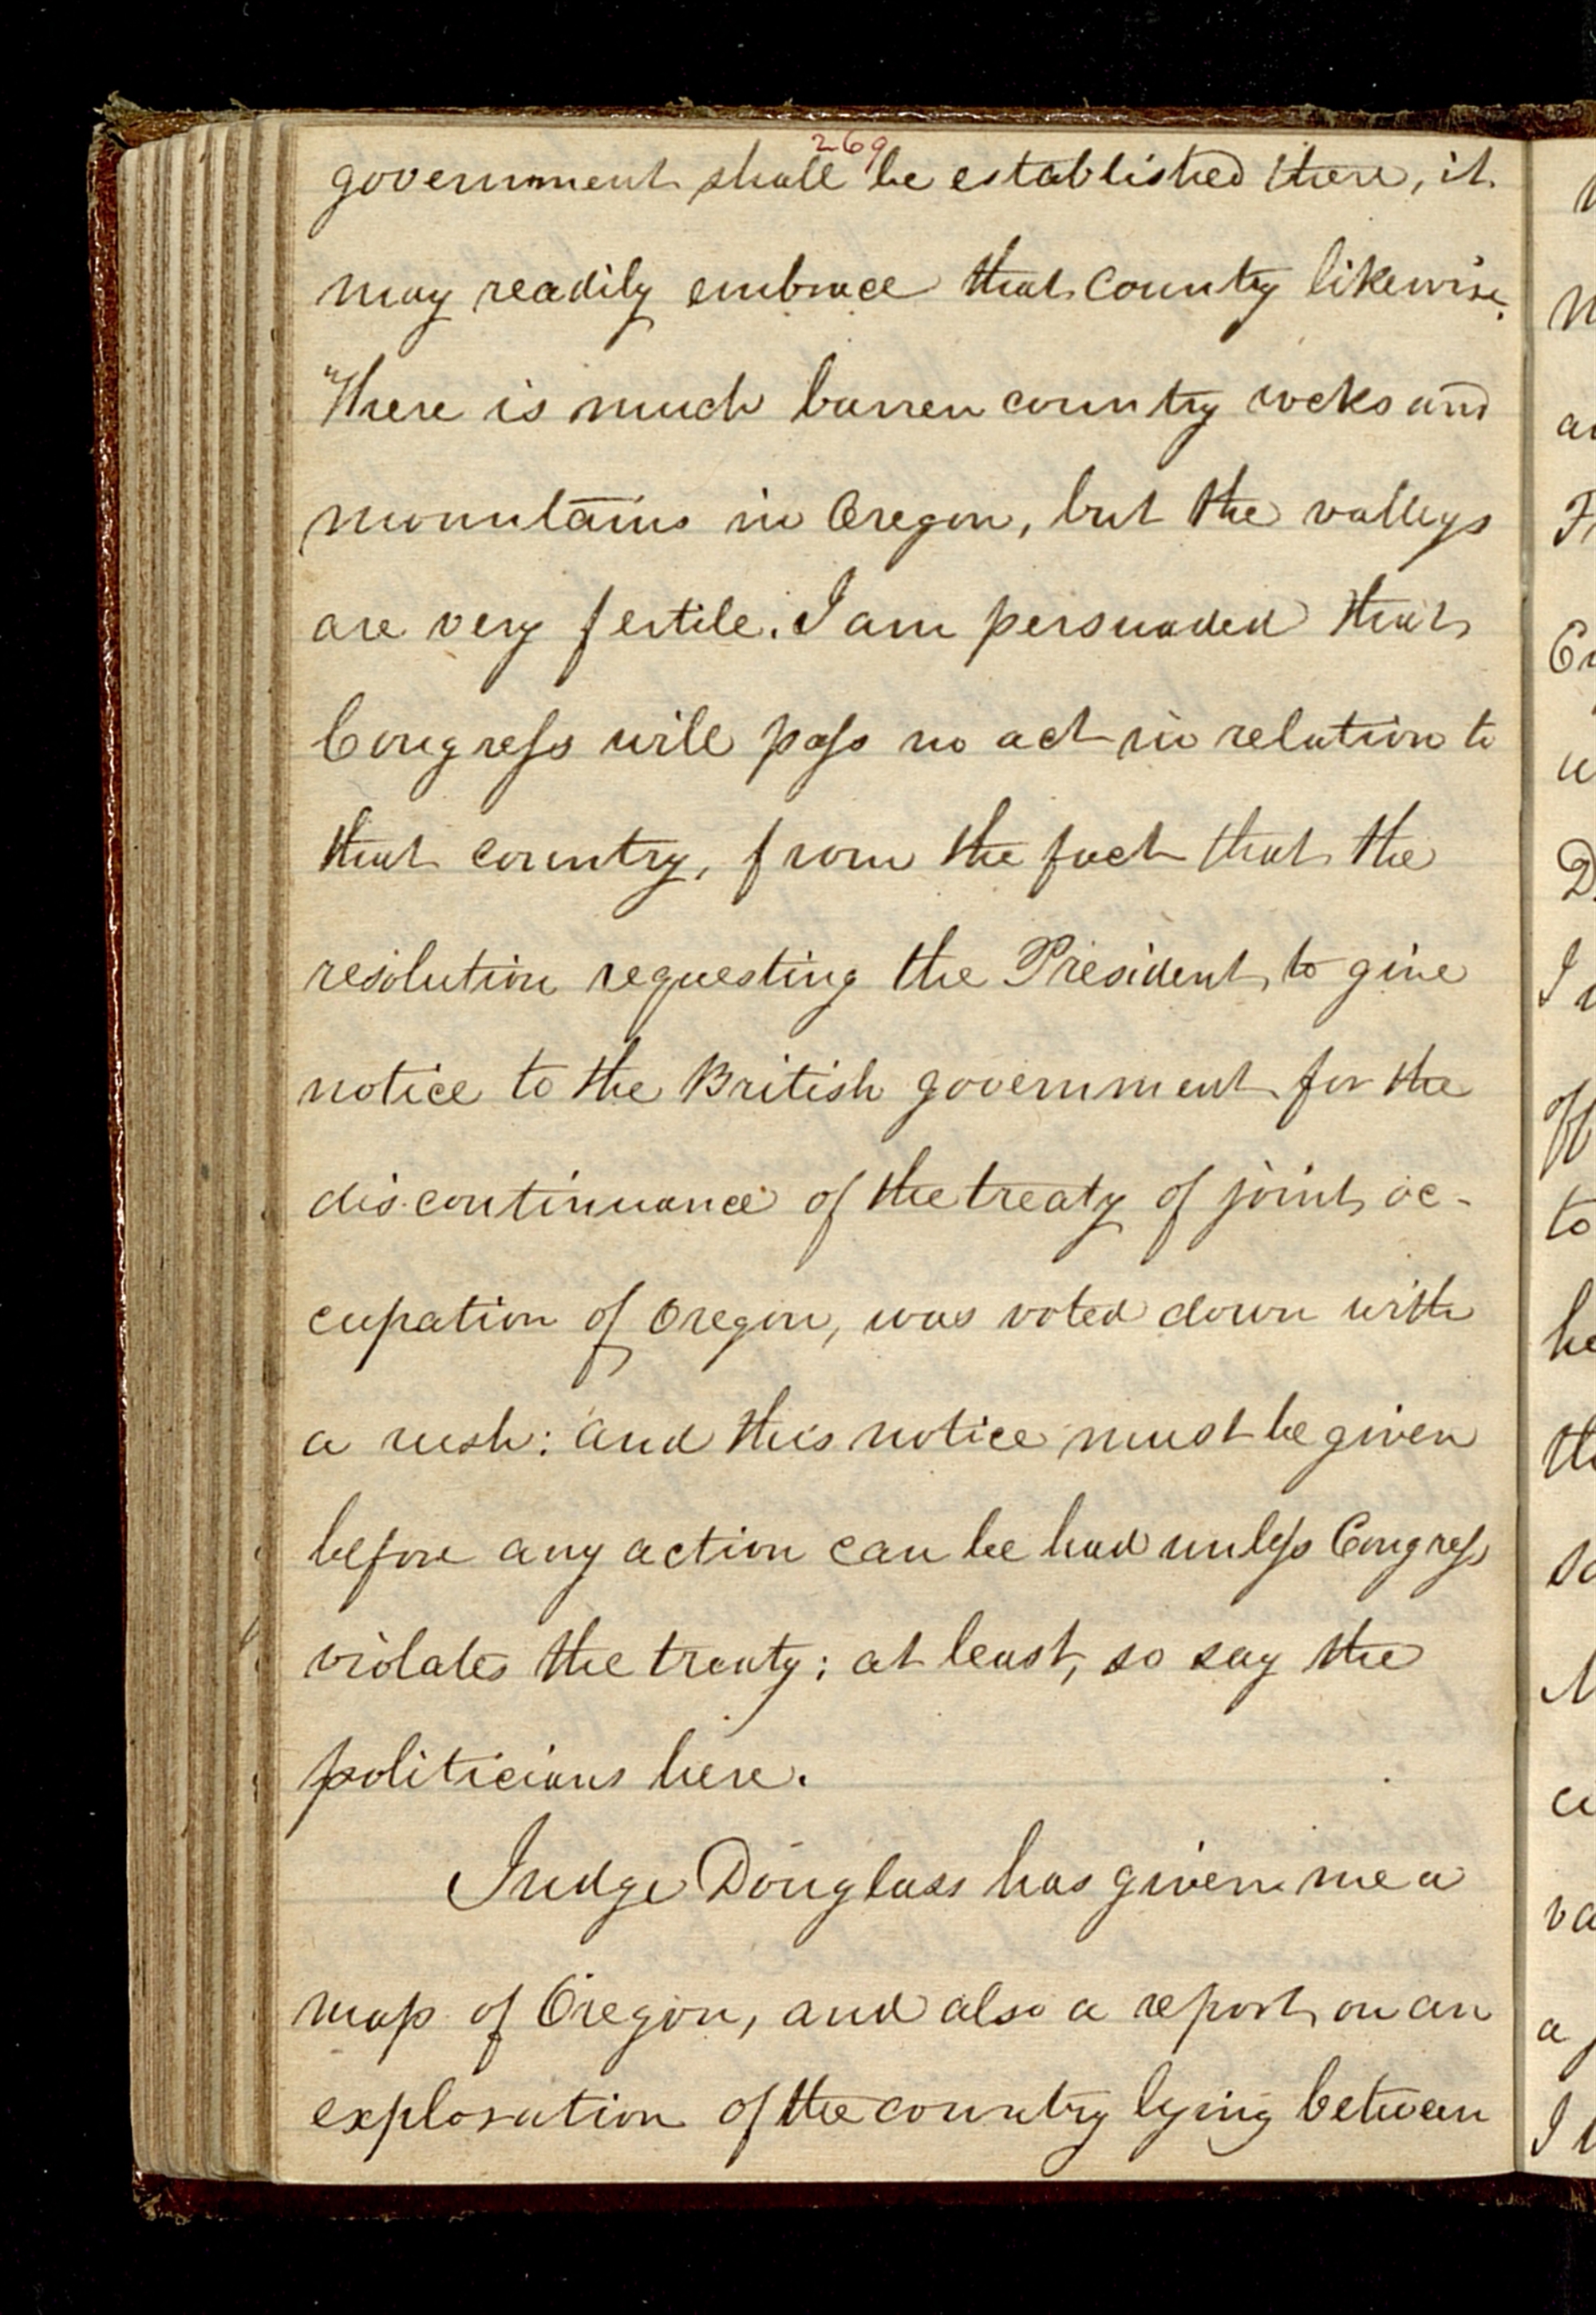 269
government shall be established there, it
may readily embrace that county likewise.
"There is much barren country rocks and
mountains in Oregon, but the valleys
are very fertile. I am persuaded that
Congress will pass no act in relation to
that country, from the fact that the
resolution requesting the President to give
notice to the British government for the
discontinuance of the treaty of joint oc-
cupation of Oregon, was voted down with
a rush: and this notice must be given
before any action can be had unless Congress
violates the treaty; at least, so say the
politicians here.
Judge Douglass has given me a
map of Oregon, and also a report on an
exploration of the country lying between